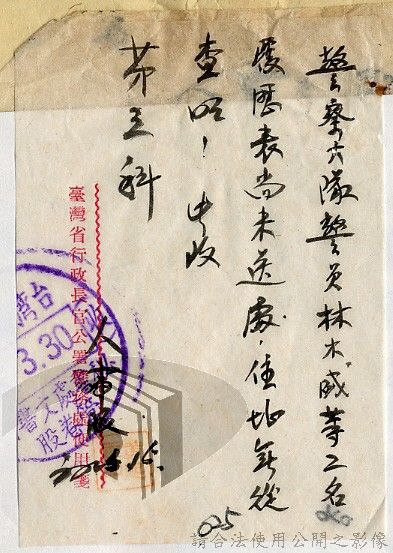 警察大隊警員林木盛等二名
履歷表尚未送處，住址無從
查明！ 此致
第三科
人事股
臺灣省行政長官公署警務處便用箋
台灣
3. 30
文書股
025
請合法使用公開之影像